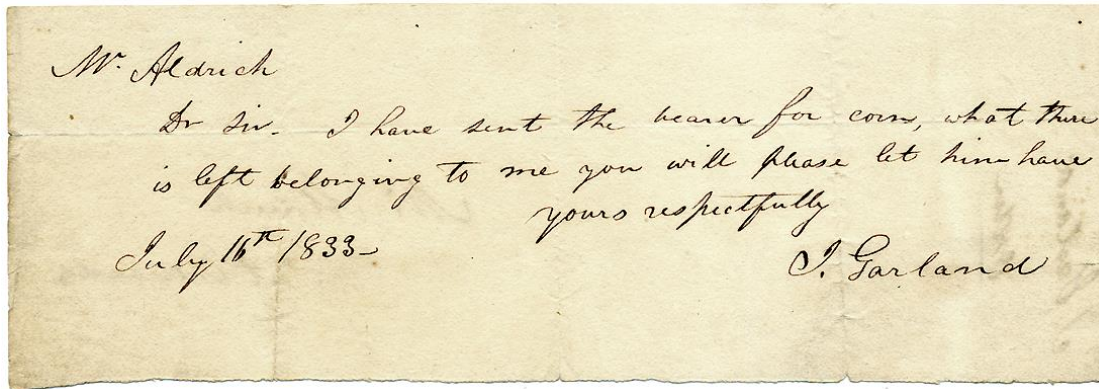 Mr. Aldrich
Dr Sir. I have sent the bearer for corn, what there
is left belonging to me you will please let him have
yours respectfully
July 16th 1833
J. Garland